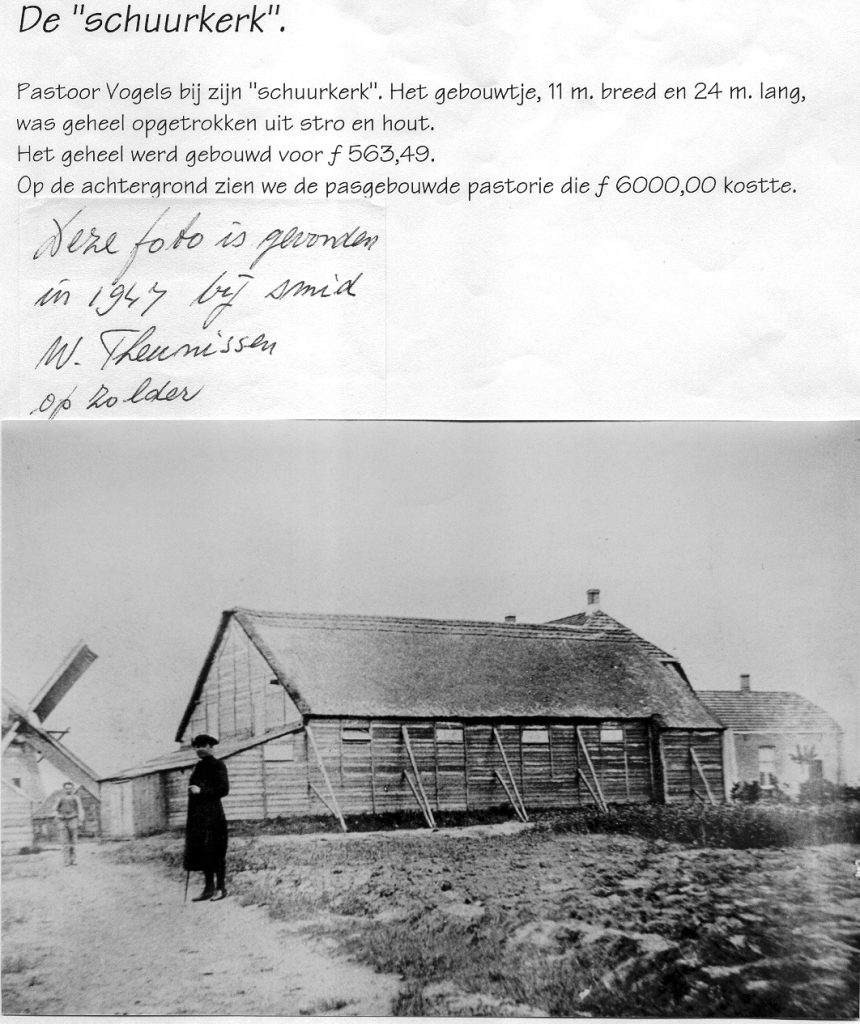 De "schuurkerk".
Pastoor Vogels bij zijn "schuurkerk". Het gebouwtje, 11 m. breed en 24 m. lang,
was geheel opgetrokken uit stro en hout.
Het geheel werd gebouwd voor ƒ 563,49.
Op de achtergrond zien we de pasgebouwde pastorie die ƒ 6000,00 kostte.
Deze foto is gevonden
in 1947 bij smid
W. Theunissen
op zolder